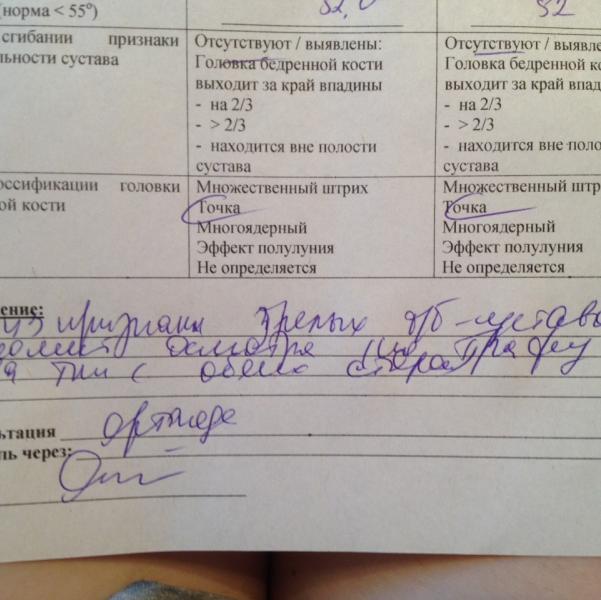 (норма < 55°) 52
сгибании признаки
льности сустава
Отсутствуют / выявлены:
Головка бедренной кости
выходит за край впадины
- на 2/3
- > 2/3
- находится вне полости
сустава
Отсутствуют / выявле
Головка бедренной к
выходит за край впад
- на 2/3
- > 2/3
- находится вне поло
сустава
оссификации головки
ой кости
Множественный штрих
Точка
Многоядерный
Эффект полулуния
Не определяется
Множественный штр
Точка
Многоядерный
Эффект полулуния
Не определяется
ение:
УЗ признаки зрелых т/б суставов
осмотра
тип с обеих сторон
ьтация ортопеда
ль через: